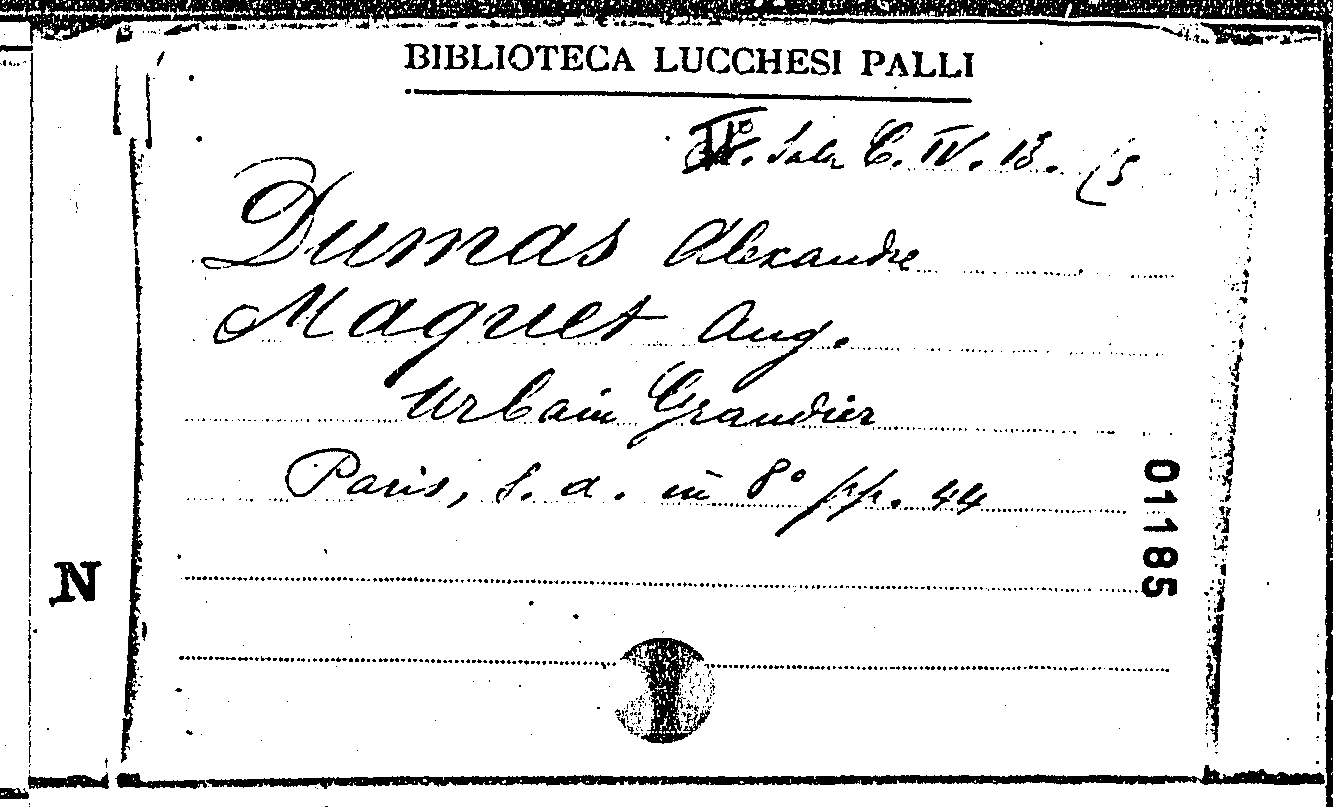 BIBLIOTECA LUCCHESI PALLI
IIº. Sala C. IV. 13. (5
Dumas Alexandre
Maquet Aug.
Urbain Grandier
Paris, s. a. in 8º pp. 44
01185
N